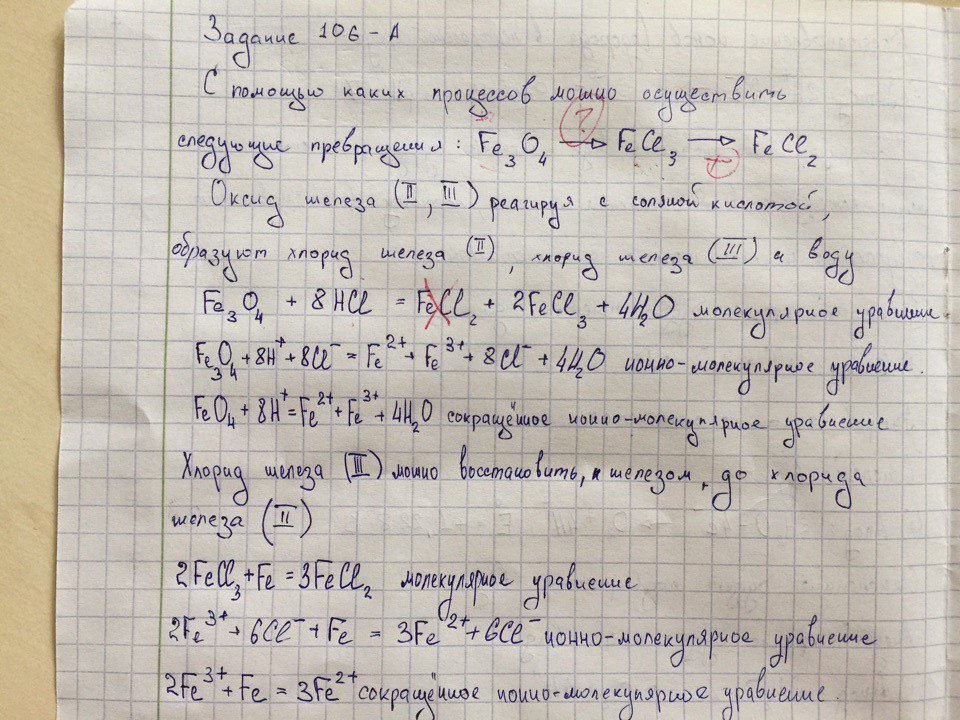 Задание 106-А
С помощью каких процессов можно осуществить
следующие превращения: Fe₃O₄ →(?) FeCl₃ →(+) FeCl₂
Оксид железа (II, III) реагируя с соляной кислотой,
образуют хлорид железа (II), хлорид железа (III) и воду
Fe₃O₄ + 8HCl = FeCl₂ + 2FeCl₃ + 4H₂O молекулярное уравнение.
Fe₃O₄ + 8H⁺ + 8Cl⁻ = Fe²⁺ + Fe³⁺ + 8Cl⁻ + 4H₂O ионно-молекулярное уравнение.
FeO₄ + 8H⁺ = Fe²⁺ + Fe³⁺ + 4H₂O сокращённое ионно-молекулярное уравнение
Хлорид железа (III) можно восстановить, железом, до хлорида
железа (II)
2FeCl₃ + Fe = 3FeCl₂ молекулярное уравнение
2Fe³⁺ + 6Cl⁻ + Fe = 3Fe²⁺ + 6Cl⁻ ионно-молекулярное уравнение
2Fe³⁺ + Fe = 3Fe²⁺ сокращённое ионно-молекулярное уравнение.